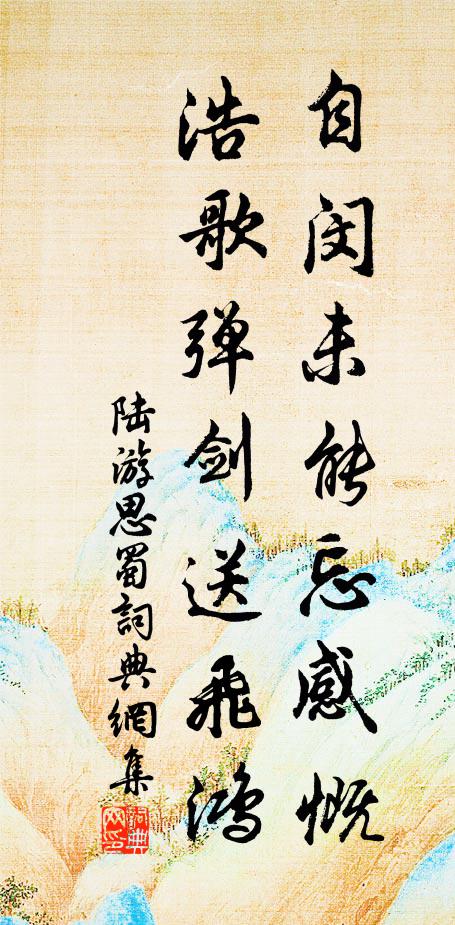 自闵未能忘感慨
浩歌弹剑送飛鸿
陆游思蜀詞典網集
詞典
网印